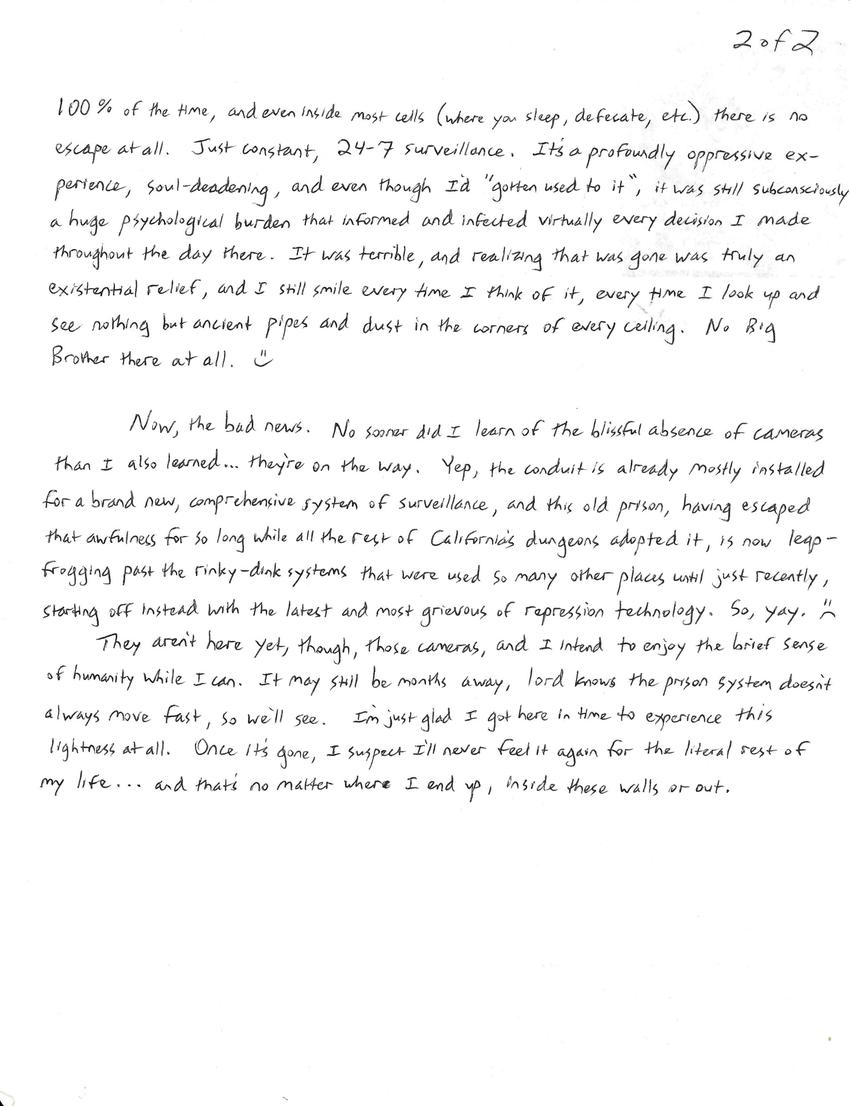 2 of 2
100% of the time, and even inside most cells (where you sleep, defecate, etc.) there is no
escape at all. Just constant, 24-7 surveillance. It's a profoundly oppressive ex-
perience, soul-deadening, and even though I'd "gotten used to it", it was still subconsciously
a huge psychological burden that informed and infected virtually every decision I made
throughout the day there. It was terrible, and realizing that was gone was truly an
existential relief, and I still smile every time I think of it, every time I look up and
see nothing but ancient pipes and dust in the corners of every ceiling. No Big
Brother there at all. :)
Now, the bad news. No sooner did I learn of the blissful absence of cameras
than I also learned... they're on the way. Yep, the conduit is already mostly installed
for a brand new, comprehensive system of surveillance, and this old prison, having escaped
that awfulness for so long while all the rest of California's dungeons adopted it, is now leap-
frogging past the rinky-dink systems that were used so many other places until just recently,
starting off instead with the latest and most grievous of repression technology. So, yay. :(
They aren't here yet, though, those cameras, and I intend to enjoy the brief sense
of humanity while I can. It may still be months away, lord knows the prison system doesn't
always move fast, so we'll see. I'm just glad I got here in time to experience this
lightness at all. Once it's gone, I suspect I'll never feel it again for the literal rest of
my life... and that's no matter where I end up, inside these walls or out.